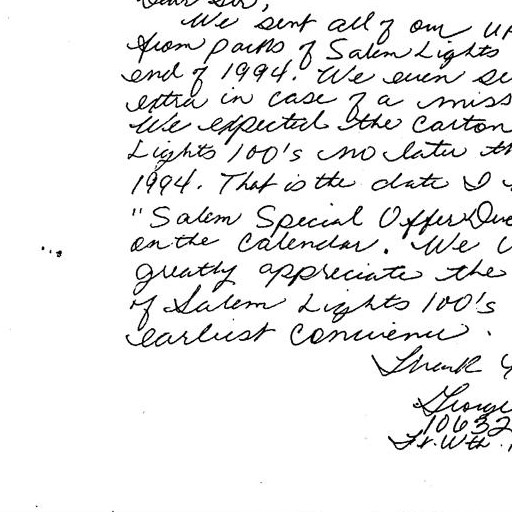 Dear Sir,
We sent all of our UP
from packs of Salem Lights
end of 1994. We even se
extra in case of a miss
We expected the carton
Lights 100's no later th
1994. That is the date I
"Salem Special Offer Due
on the calendar. We
greatly appreciate the
of Salem Lights 100's
earliest convience.
Thank
George
10632
Ft. Wth.